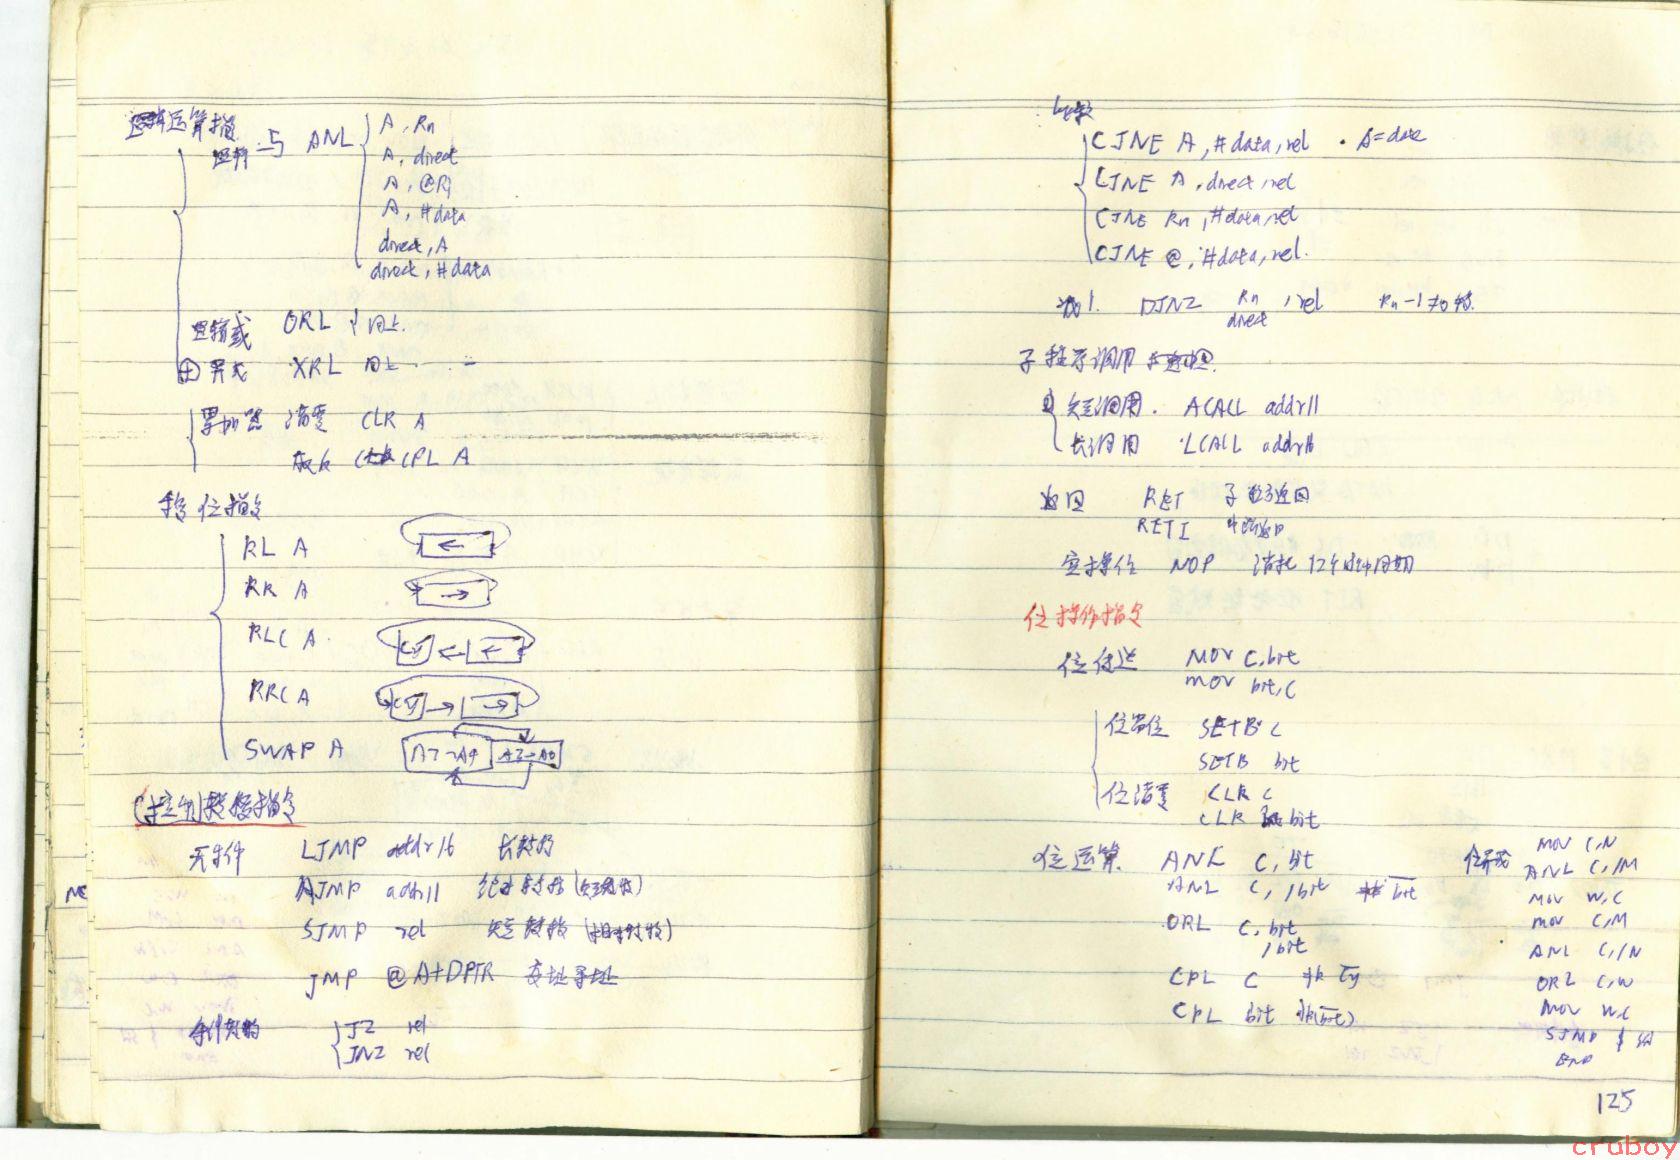 逻辑运算指
逻辑 与 ANL
A, Rn
A, direct
A, @Ri
A, #data
direct, A
direct, #data
逻辑或 ORL 同上.
⊕ 异或 XRL 同上
累加器 清零 CLR A
取反 CPL A
移位指令
RL A ←
RR A →
RLC A. CY ← ←
RRC A CY → →
SWAP A A7~A4 A3~A0
控制转移指令
无条件 LJMP addr16 长转移
AJMP addr11 绝对转移
SJMP rel 短转移 (相对转移)
JMP @A+DPTR 变址寻址
条件转移 JZ rel
JNZ rel
比较
CJNE A, #data, rel · A=data
CJNE A, direct, rel
CJNE Rn, #data, rel
CJNE @, #data, rel.
减1. DJNZ Rn , rel Rn-1≠0转.
direct
子程序调用
短调用. ACALL addr11
长调用 LCALL addr16
返回 RET 子程序返回
RETI 中断返回
空操作 NOP 消耗12个时钟周期
位操作指令
位传送 MOV C, bit
MOV bit, C
位置位 SETB C
SETB bit
位清零 CLR C
CLR bit
位运算. ANL C, bit
ANL C, /bit
ORL C, bit
/bit
CPL C
CPL bit
位异或 MOV C, N
ANL C, /M
MOV W, C
MOV C, M
ANL C, /N
ORL C, W
MOV W, C
SJMP $
END
125
cruboy